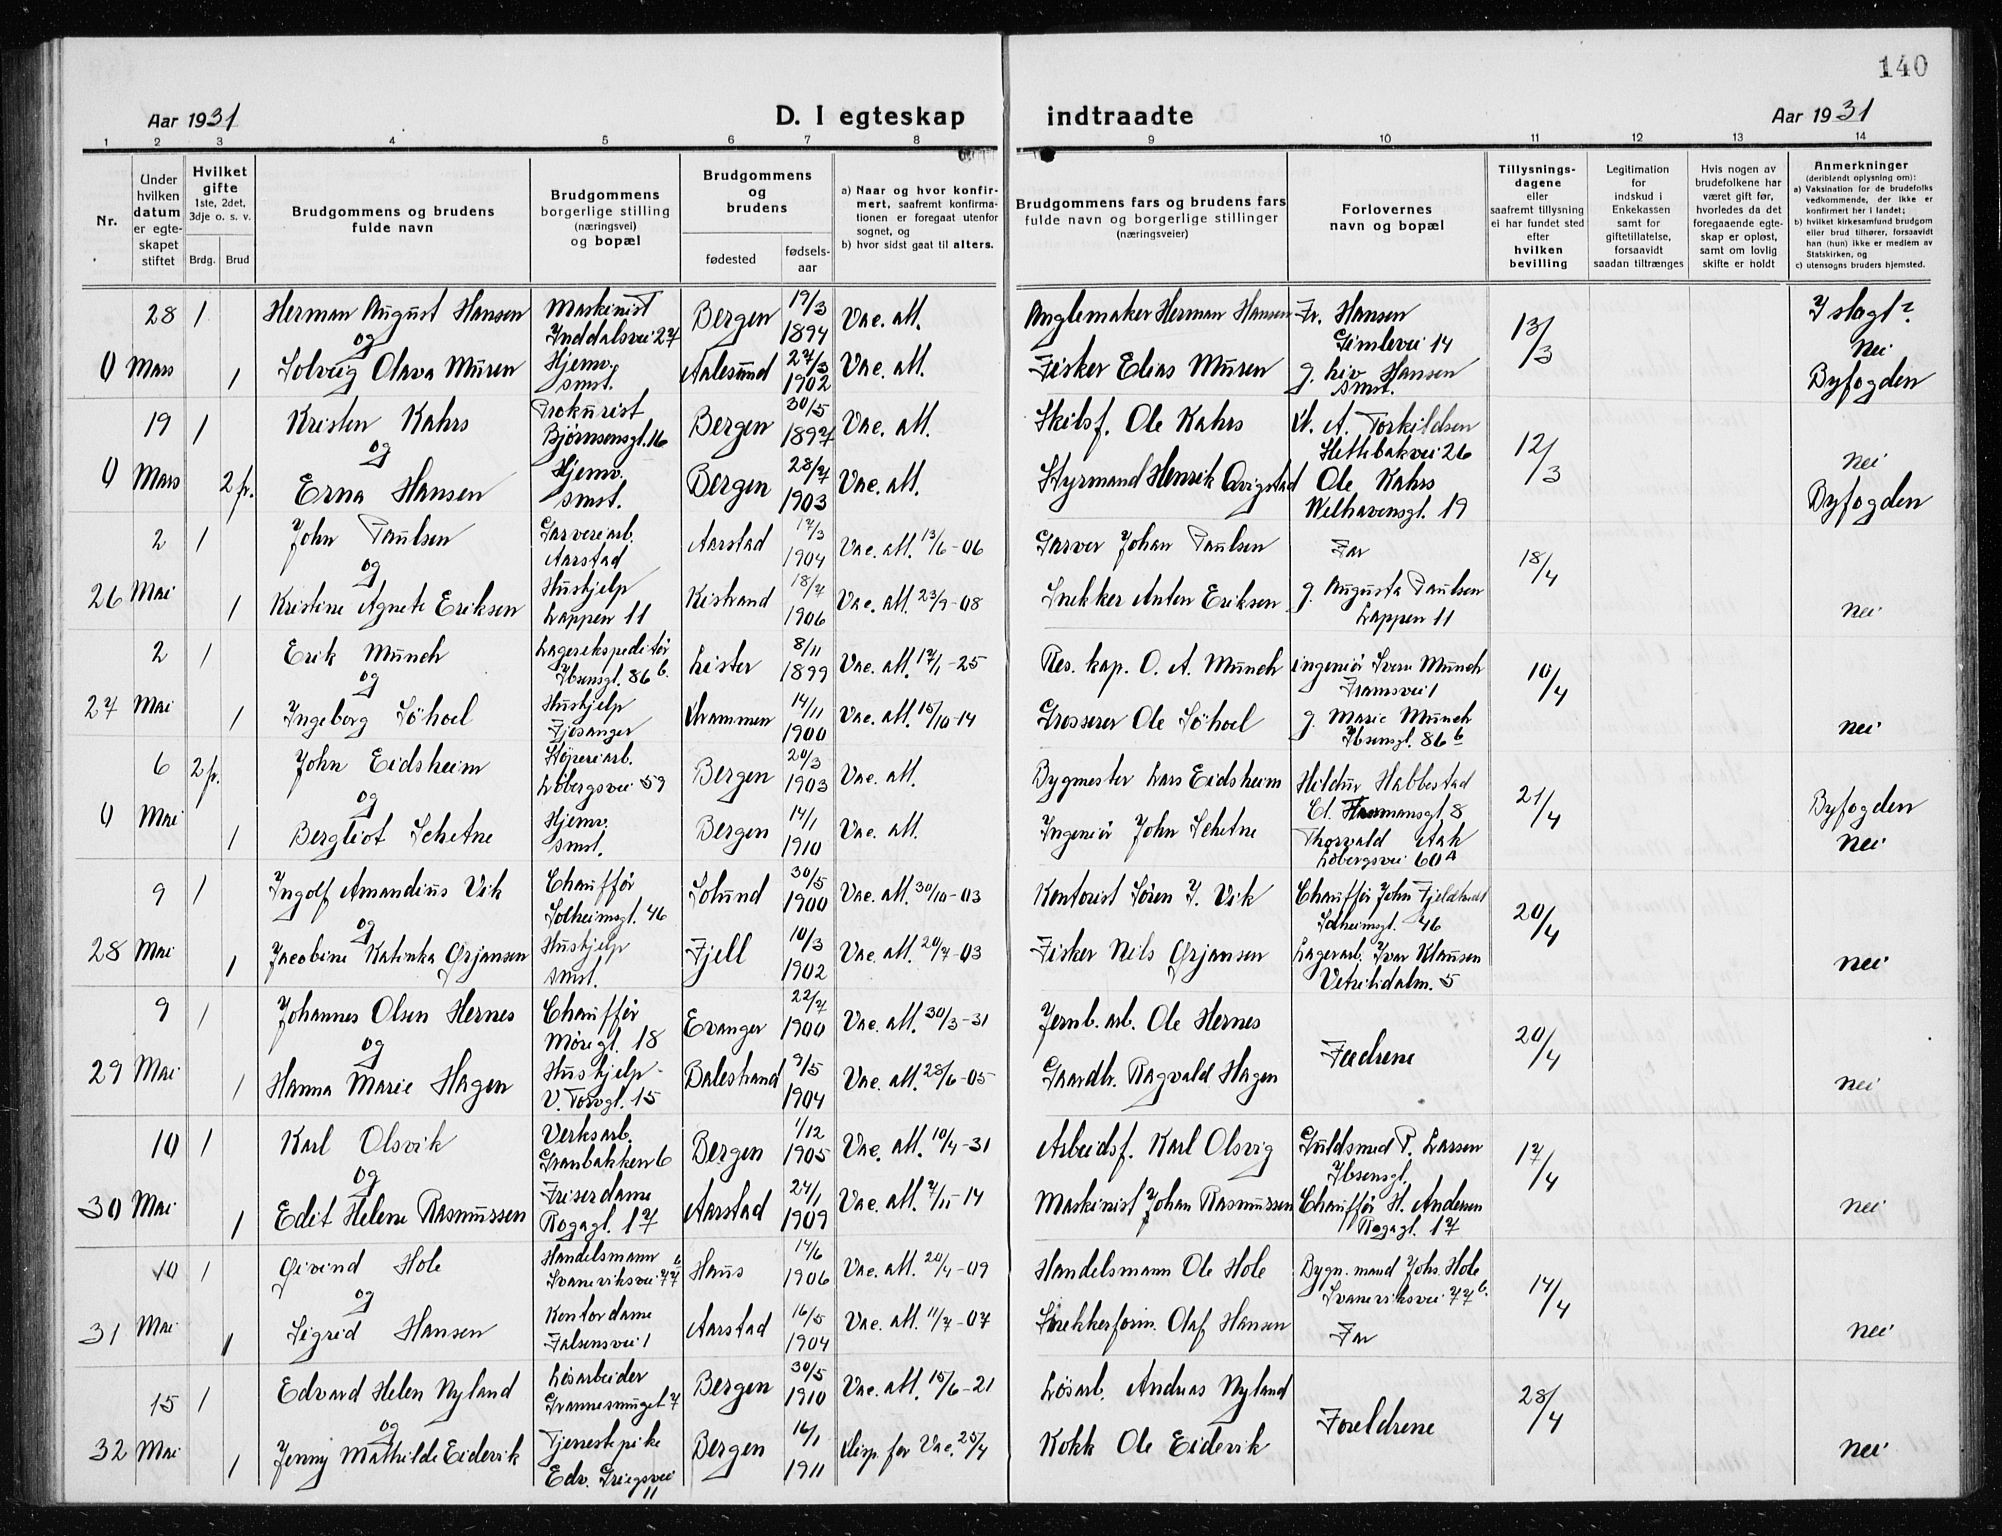 140
Aar 1931
D. I egteskap indtraadte
Aar 1931
1 2 3 4 5 6 7 8 9 10 11 12 13 14
Nr.
Under hvilken datum er egte-skapet stiftet
Hvilket gifte
1ste, 2det, 3dje o. s. v.
Brdg. Brud
Brudgommens og brudens
fulde navn
Brudgommens
borgerlige stilling
(næringsvei)
og bopæl
Brudgommens
og
brudens
fødested
fødsels-aar
a) Naar og hvor konfir-
mert, saafremt konfirma-
tionen er foregaat utenfor
sognet, og
b) hvor sidst gaat til alters.
Brudgommens fars og brudens fars
fulde navn og borgerlige stillinger
(næringsveier)
Forlovernes
navn og bopæl
Tillysnings-
dagene
eller
saafremt tillysning
ei har fundet sted
efter
hvilken
bevilling
Legitimation
for
indskud i
Enkekassen
samt for
giftetillatelse,
forsaavidt
saadan tiltrænges
Hvis nogen av
brudefolkene har
været gift før,
hvorledes da det
foregaaende egte-
skap er opløst,
samt om lovlig
skifte er holdt
Anmerkninger
(deriblandt oplysning om):
a) Vaksination for de brudefolks
vedkommende, der ikke er
konfirmert her i landet;
b) hvilket kirkesamfund brudgom
eller brud tilhører, forsaavidt
han (hun) ikke er medlem av
Statskirken, og
c) utensogns bruders hjemsted.
28 1 Herman August Hansen Maskinist Inddalsvei 27 Bergen 19/3 1894 Vac. att. Herman Hansen Fr. Hansen Gimlevei 14 13/3 I slagt? Nei
og
0 Mars 1 Solveig Olava Muren Hjemv. smst. Aalesund 27/3 1902 Vac. att. Fisker Elias Muren g. Liv Hansen smst. Byfogden
19 1 Kristen Kahrs Prokurist Bjørnsensgt. 16 Bergen 30/5 1897 Vac. att. Skibsf. Ole Kahrs A. Torkildsen Hettebakvei 26 12/3
og
0 Mars 2 fr. Erna Hansen Hjemv. smst. Bergen 28/7 1903 Vac. att. Styrmand Henrik Avigstad Ole Kahrs Welhavensgt. 19 nei Byfogden
2 1 John Paulsen Garveriarb. Aarstad Aarstad 17/3 1904 Vac. att. 13/6-06 Garver Johan Paulsen Far 18/4
og
26 Mai 1 Kristine Agnete Eriksen Hushjelp Lappen 11 Kistrand 18/7 1906 Vac. att. 23/9-08 Snekker Anton Eriksen g. Augusta Paulsen Lappen 11 nei
2 1 Erik Munch Lagerekspeditør Ibsensgt. 86 b. Lister 8/11 1899 Vac. att. 17/1-25 Res. kap. O. A. Munch ingeniør Sverre Munch Framsvei 1 10/4
og
27 Mai 1 Ingeborg Söhoel Hushjelp Fjøsanger Drammen 14/11 1900 Vac. att. 15/10-14 Grosserer Ole Söhoel g. Marie Munch Ibsensgt. 86 b nei
6 2 fr. John Eidsheim Støperiarb. Løbergsvei 59 Bergen 20/3 1903 Vac. att. Bygmester Lars Eidsheim Hildur Habbestad Cl. 8 21/4 Byfogden
og
0 Mai 1 Bergliot Schetne Hjemv. smst. Bergen 14/1 1910 Vac. att. Ingeniør John Schetne Thorvald Aak Løbergsvei 60 A nei
9 1 Ingolf Amandius Vik Chauffør Solheimsgt. 46 Solund 30/5 1900 Vac. att. 30/10-03 Kontorist Søren J. Vik Chauffør John Solheimsgt. 46 20/4
og
28 Mai 1 Jacobine Katinka Ørjansen Hushjelp smst. Fjell 10/3 1902 Vac. att. 20/7-03 Fisker Nils Ørjansen Lagerarb. Ivar Klausen Vetrlidalm. 5 nei
9 1 Johannes Olsen Hernes Chauffør Møregt. 18 Evanger 22/7 1900 Vac. att. 30/3-31 Jernb. arb. Ole Hernes Fædrene 20/4
og
29 Mai 1 Hanna Marie Hagen Hushjelp V. Torvgt. 15 Balestrand 9/5 1904 Vac. att. 28/6-05 Gaardbr. Ragvald Hagen nei
10 1 Karl Olsvik Verksarb. Granbakken 6 Bergen 1/12 1905 Vac. att. 10/4-31 Arbeidsf. Karl Olsvig Guldsmed P. Larsen Ibsensgt. 17/4
og
30 Mai 1 Edit Helene Rasmussen Friserdame Rogagt. 17 Aarstad 24/1 1909 Vac. att. 7/11-14 Maskinist Johan Rasmussen Chauffør H. Andersen Rogagt. 17 nei
10 1 Øivind Hole Handelsmann Svaneviksvei 77 b Haus 14/6 1906 Vac. att. 20/4-09 Handelsmann Ole Hole Bygn. mand Johs. Hole Svaneviksvei 77 b. 14/4
og
31 Mai 1 Sigrid Hansen Kontordame Falsensvei 1 Aarstad 16/5 1904 Vac. att. 11/7-07 Snekkerform. Olaf Hansen Far nei
15 1 Edvard Helen Nyland Løsarbeider 7 Bergen 30/5 1910 Vac. att. 15/6-21 Løsarb. Andreas Nyland Foreldrene 28/4
og
32 Mai 1 Jenny Mathilde Eidevik Tjenestepike Edv. Griegsvei 11 Bergen 16/1 1911 Disp. for Vac. 25/4 Kokk Ole Eidevik nei